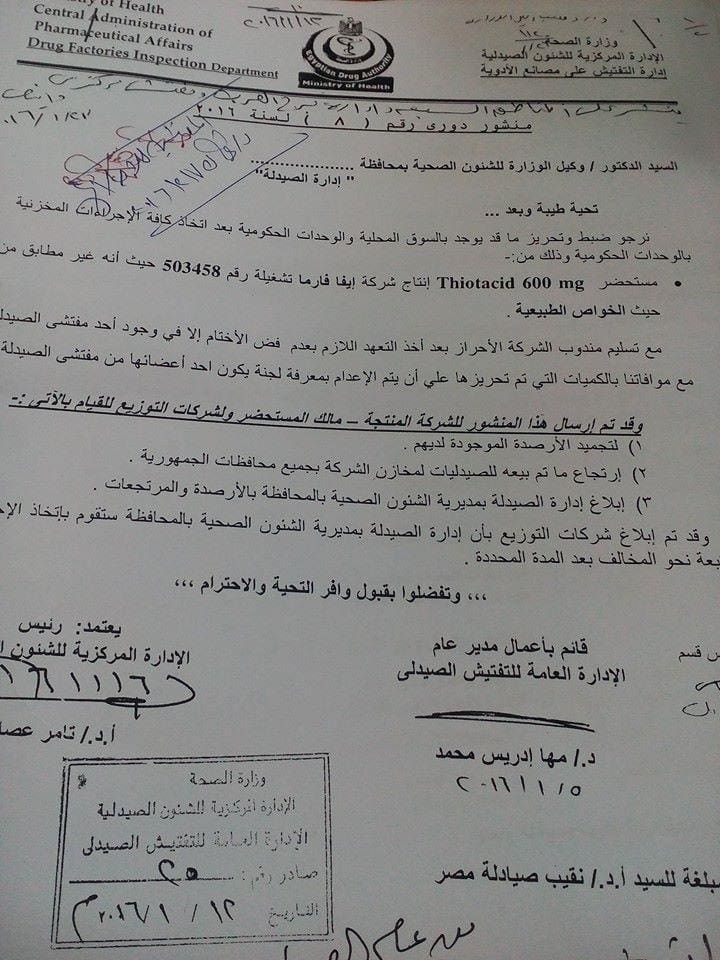 Ministry of Health
Central Administration of
Pharmaceutical Affairs
Drug Factories Inspection Department
Egyptian Drug Authority
Ministry of Health
وزارة الصحة
الإدارة المركزية للشئون الصيدلية
إدارة التفتيش على مصانع الأدوية
٢٠١٦/١/١٣
منشور دورى رقم ( ٨ ) لسنة ٢٠١٦
السيد الدكتور / وكيل الوزارة للشئون الصحية بمحافظة ..................
" إدارة الصيدلة "
تحية طيبة وبعد ...
نرجو ضبط وتحريز ما قد يوجد بالسوق المحلية والوحدات الحكومية بعد اتخاذ كافة الإجراءات المخزنية
بالوحدات الحكومية وذلك من:-
• مستحضر Thiotacid 600 mg إنتاج شركة إيفا فارما تشغيلة رقم 503458 حيث أنه غير مطابق من
حيث الخواص الطبيعية .
مع تسليم مندوب الشركة الأحراز بعد أخذ التعهد اللازم بعدم فض الأختام إلا في وجود أحد مفتشى الصيدلة
مع موافاتنا بالكميات التي تم تحريزها علي أن يتم الإعدام بمعرفة لجنة يكون احد أعضائها من مفتشى الصيدلة
وقد تم إرسال هذا المنشور للشركة المنتجة – مالك المستحضر ولشركات التوزيع للقيام بالآتى :-
١) لتجميد الأرصدة الموجودة لديهم .
٢) إرتجاع ما تم بيعه للصيدليات لمخازن الشركة بجميع محافظات الجمهورية .
٣) إبلاغ إدارة الصيدلة بمديرية الشئون الصحية بالمحافظة بالأرصدة والمرتجعات .
وقد تم إبلاغ شركات التوزيع بأن إدارة الصيدلة بمديرية الشئون الصحية بالمحافظة ستقوم بإتخاذ
نحو المخالف بعد المدة المحددة .
وتفضلوا بقبول وافر التحية والاحترام ،،،
قسم
قائم بأعمال مدير عام
الإدارة العامة للتفتيش الصيدلى
د./ مها إدريس محمد
٢٠١٦/١/٥
يعتمد: رئيس
الإدارة المركزية للشئون
أ.د./ تامر
وزارة الصحة
الإدارة المركزية للشئون الصيدلية
الإدارة العامة للتفتيش الصيدلى
صادر رقم: ٢٥
التاريخ ١٢ / ١ / ٢٠١٦م
مبلغة للسيد أ.د./ نقيب صيادلة مصر